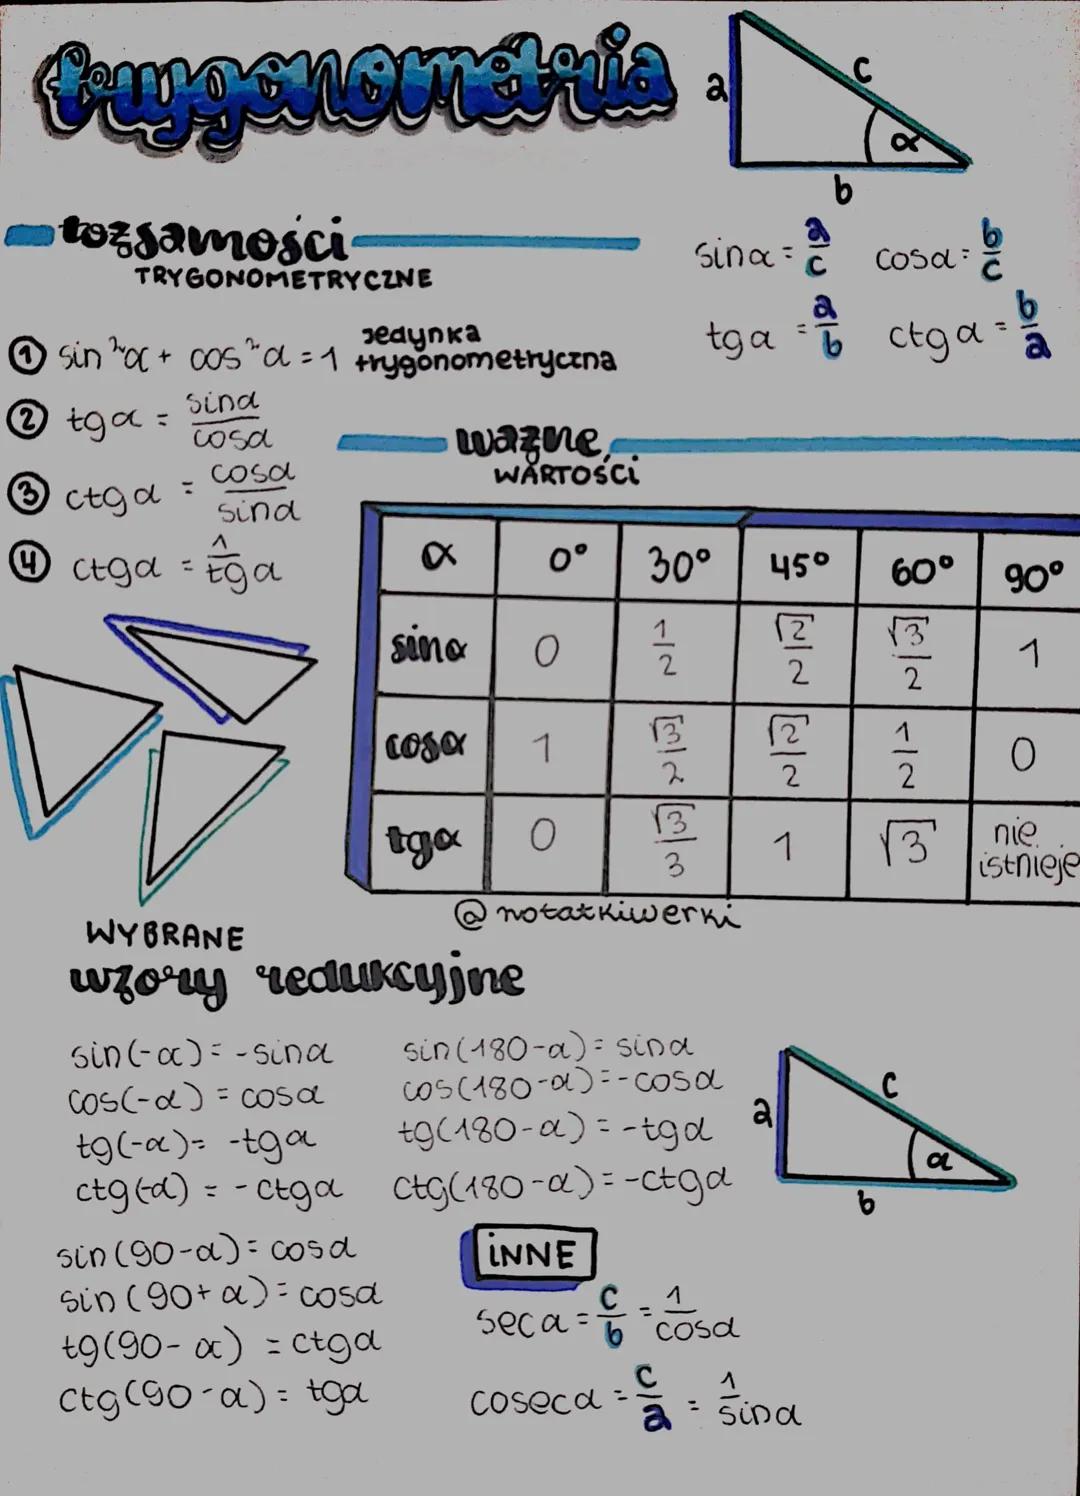 trygonometria
a
c
α
b
tożsamości
TRYGONOMETRYCZNE
sinα = a/c cosα = b/c
tgα = a/b ctgα = b/a
① sin²α + cos²α = 1 Jedynka trygonometryczna
② tgα = sinα/cosα
③ ctgα = cosα/sinα
④ ctgα = 1/tgα
ważne
WARTOŚCI
α 0° 30° 45° 60° 90°
sinα 0 1/2 √2/2 √3/2 1
cosα 1 √3/2 √2/2 1/2 0
tgα 0 √3/3 1 √3 nie istnieje
@notatkiwerki
WYBRANE
wzory redukcyjne
sin(-α) = -sinα
cos(-α) = cosα
tg(-α) = -tgα
ctg(-α) = -ctgα
sin(180-α) = sinα
cos(180-α) = -cosα
tg(180-α) = -tgα
ctg(180-α) = -ctgα
a
c
α
b
sin(90-α) = cosα
sin(90+α) = cosα
tg(90-α) = ctgα
ctg(90-α) = tgα
iNNE
secα = c/b = 1/cosα
cosecα = c/a = 1/sinα